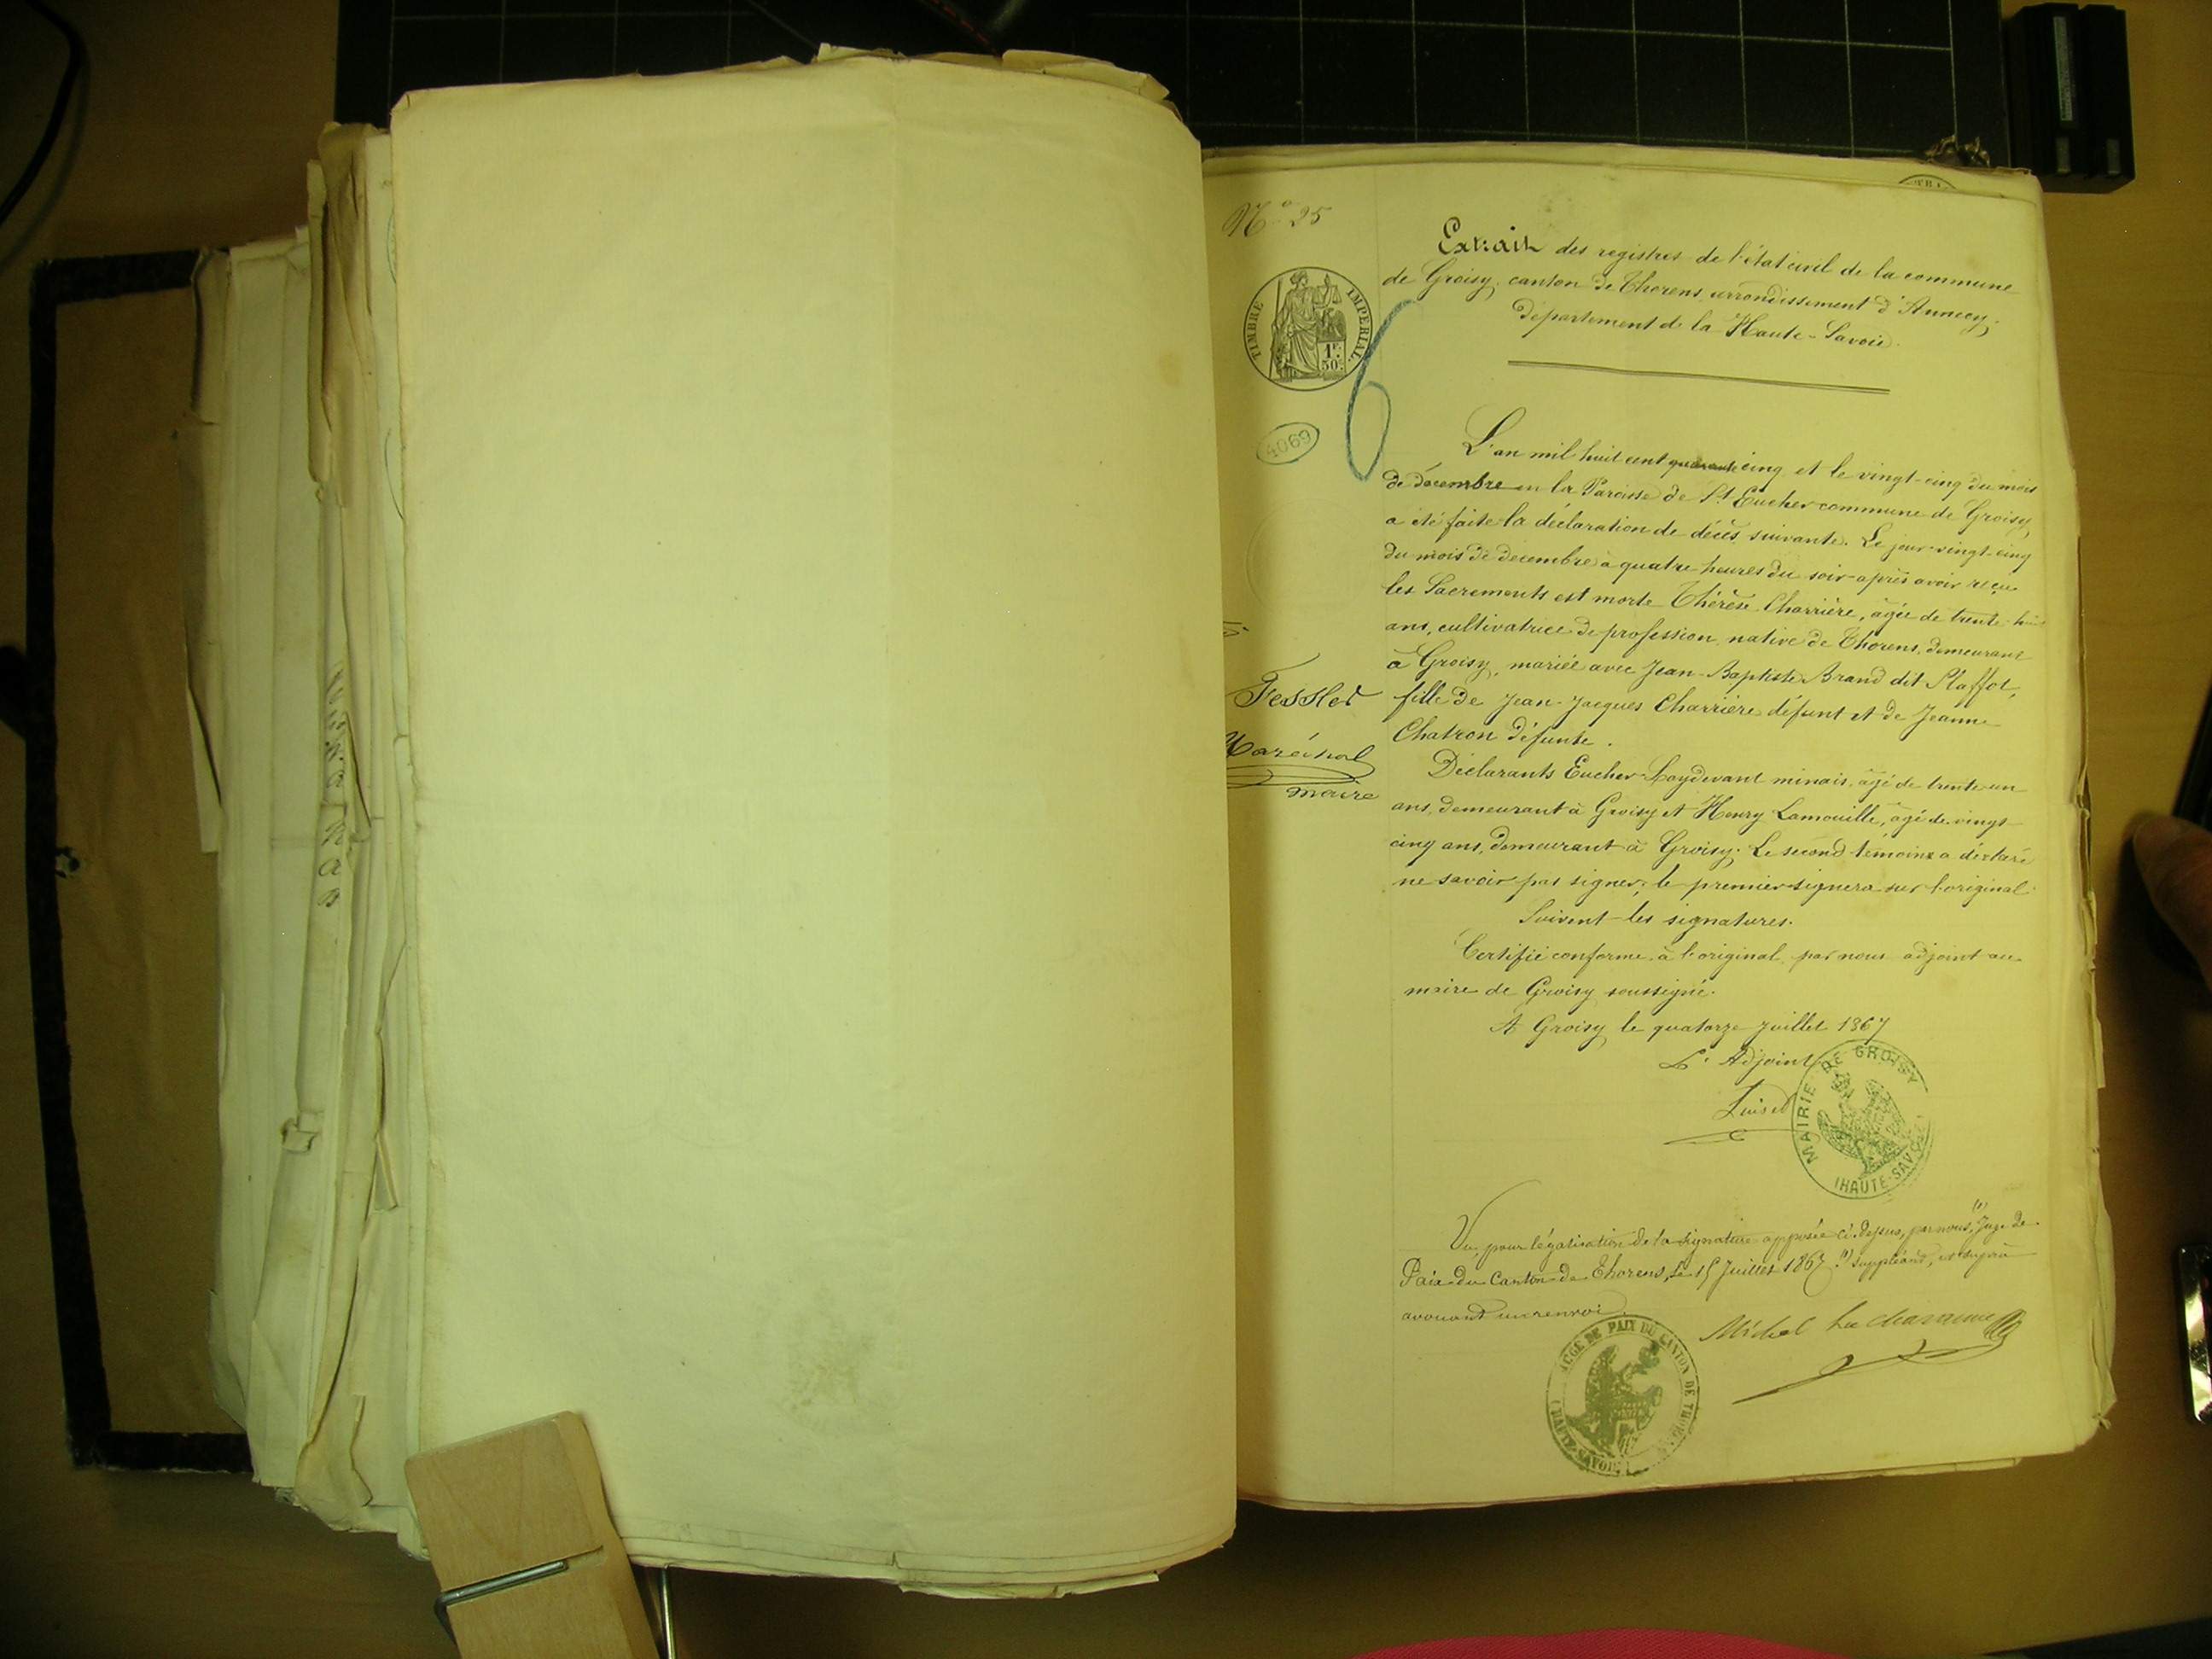 N.° 25
Extrait des registres de l'état civil de la commune
de Groisy, canton de Thorens, arrondissement d'Annecy,
département de la Haute-Savoie.
TIMBRE IMPERIAL
1F.
50c.
4069
6
L'an mil huit cent quarante cinq et le vingt-cinq du mois
de décembre en la Paroisse de St Eucher commune de Groisy
a été faite la déclaration de décès suivante. Le jour vingt-cinq
du mois de décembre à quatre heures du soir après avoir reçu
les Sacrements est morte Thérèse Charrière, âgée de trente-hui
ans, cultivatrice de profession, native de Thorens, demeurant
à Groisy, mariée avec Jean-Baptiste Brand dit Plaffot,
fille de Jean-Jacques Charrière défunt et de Jeanne
Chatron défunte.
Tessier
Maréchal
maire
Déclarants Eucher Laydevant minais, âgé de trente-un
ans, demeurant à Groisy et Henry Lamouille, âgé de vingt-
cinq ans, demeurant à Groisy. Le second témoins a déclaré
ne savoir pas signer, le premier signera sur l'original.
Suivent les signatures.
Certifié conforme à l'original par nous adjoint au
maire de Groisy soussigné.
A Groisy le quatorze juillet 1867
L'Adjoint
MAIRIE DE GROISY
(HAUTE-SAVOIE)
Vu, pour légalisation de la signature apposée ci-dessus, par nous, (1) Juge de
Paix du Canton de Thorens, le 15 Juillet 1867. (1) suppléant,
avouant un renvoi.
Michel
JUGE DE PAIX DU CANTON DE THORENS
(HAUTE-SAVOIE)